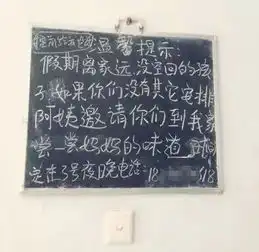 温馨提示:
假期离家远,没空回的孩
子如果你们没有其它安排
阿姨邀请你们到我家
尝一尝妈妈的味道
定在3号夜晚电话:18 518